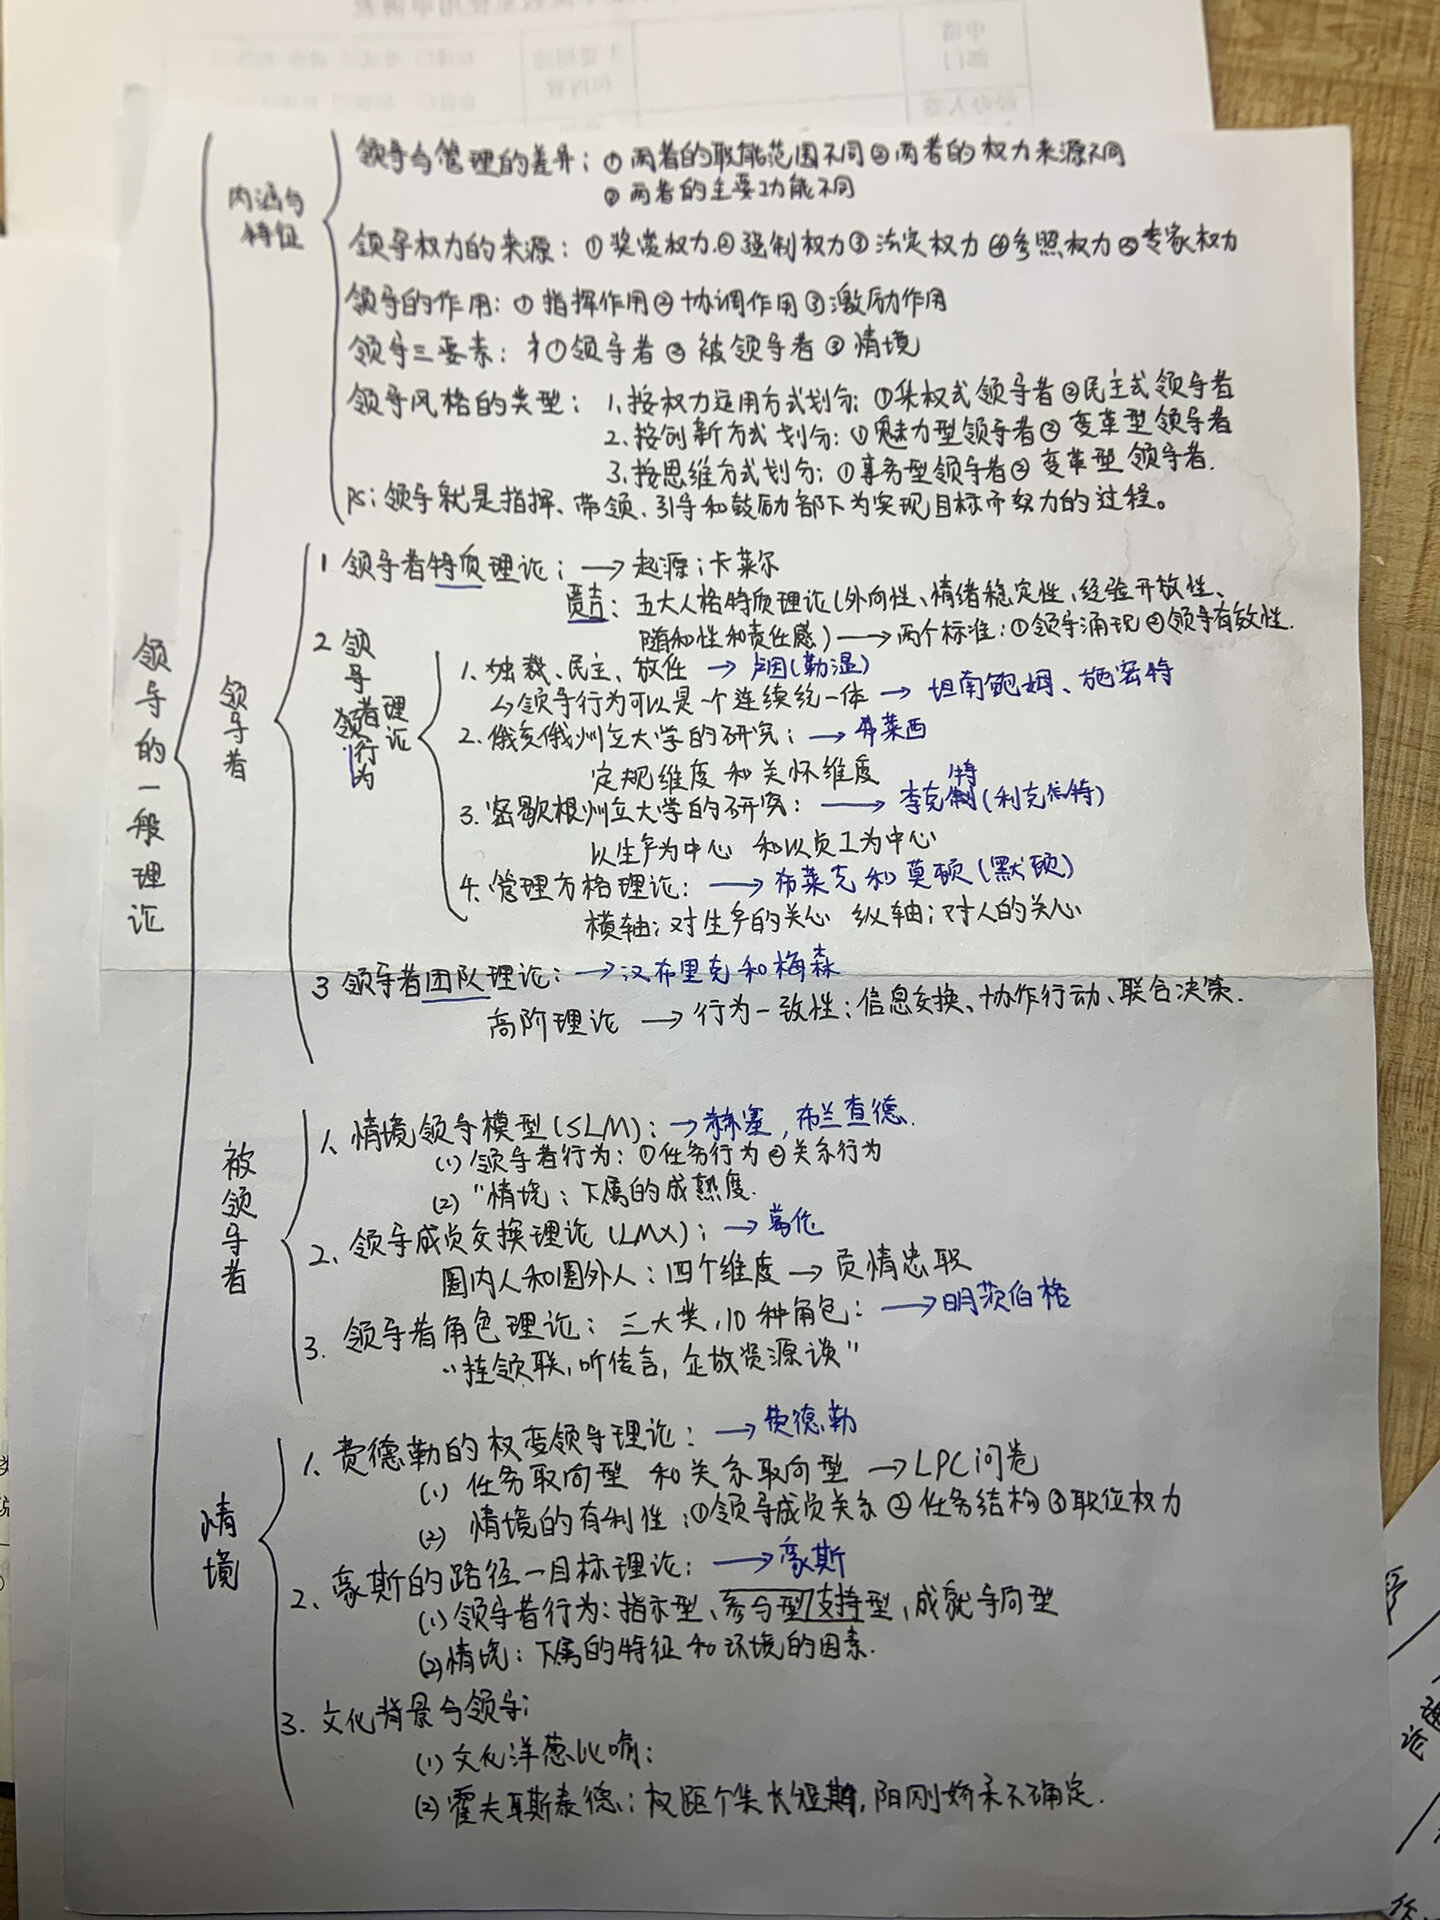 领导的一般理论
内涵与特征
领导与管理的差异：①两者的职能范围不同②两者的权力来源不同
③两者的主要功能不同
领导权力的来源：①奖赏权力②强制权力③法定权力④参照权力⑤专家权力
领导的作用：①指挥作用②协调作用③激励作用
领导三要素：①领导者②被领导者③情境
领导风格的类型：1.按权力运用方式划分：①集权式领导者②民主式领导者
2.按创新方式划分：①魅力型领导者②变革型领导者
3.按思维方式划分：①事务型领导者②变革型领导者.
PS：领导就是指挥、带领、引导和鼓励部下为实现目标而努力的过程。
领导者
1 领导者特质理论：→起源：卡莱尔
贾吉：五大人格特质理论(外向性、情绪稳定性、经验开放性、
随和性和责任感)→两个标准：①领导涌现②领导有效性.
2 领导者行为理论
1.独裁、民主、放任→卢因(勒温)
↳领导行为可以是一个连续统一体→坦南鲍姆、施密特
2.俄亥俄州立大学的研究：→弗莱西
定规维度和关怀维度
3.密歇根州立大学的研究：→李克特(利克特)
以生产为中心 和以员工为中心
4.管理方格理论：→布莱克和莫顿(默顿)
横轴：对生产的关心 纵轴：对人的关心
3 领导者团队理论：→汉布里克和梅森
高阶理论→行为一致性：信息交换、协作行动、联合决策.
被领导者
1.情境领导模型(SLM)：→赫塞，布兰查德.
(1)领导者行为：①任务行为②关系行为
(2)"情境：下属的成熟度.
2.领导成员交换理论(LMX)：→葛伦
圈内人和圈外人：四个维度→贡情忠职
3.领导者角色理论：三大类，10种角色：→明茨伯格
"挂领联，听传言，企故资源谈"
情境
1.费德勒的权变领导理论：→费德勒
(1)任务取向型 和关系取向型→LPC问卷
(2)情境的有利性：①领导成员关系②任务结构③职位权力
2、豪斯的路径一目标理论：→豪斯
(1)领导者行为：指示型、参与型支持型，成就导向型
(2)情境：下属的特征和环境的因素.
3.文化背景与领导：
(1)文化洋葱比喻：
(2)霍夫斯泰德：权距个集长短期，阳刚娇柔不确定.